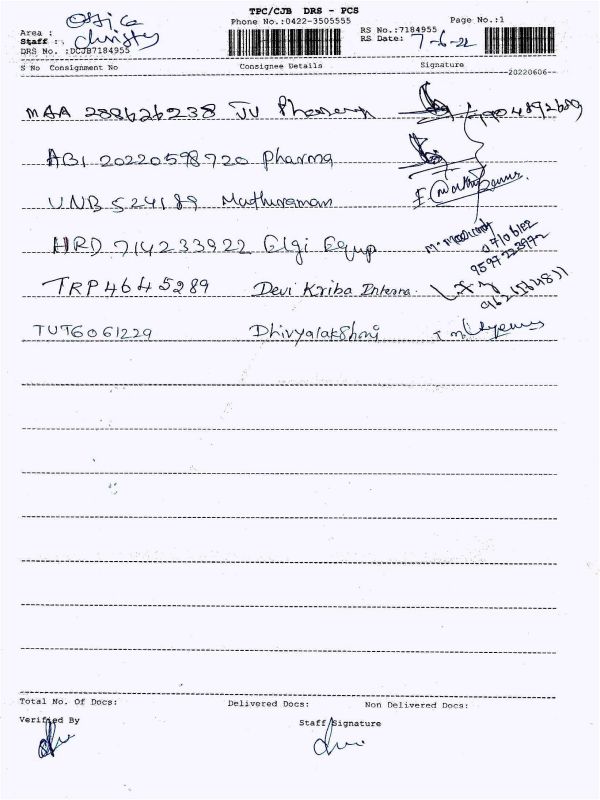 TPC/CJB DRS - PCS
Phone No.:0422-3505555 Page No.:1
Area : Office
Staff : Christy
RS No.:7184955
RS Date: 7-6-22
DRS No. :DCJB7184955
S No Consignment No Consignee Details Signature
20220606
MAA 288626238 JV
ABI 20220598720 Pharma
UNB 524189 Muthuraman
HRD 714233922 Elgi Equp
07/06/22
TRP 464 5289 Devi Kriba Enterra.
TUT6061229 Dhivyalakshmi
Total No. Of Docs: Delivered Docs: Non Delivered Docs:
Verified By Staff Signature